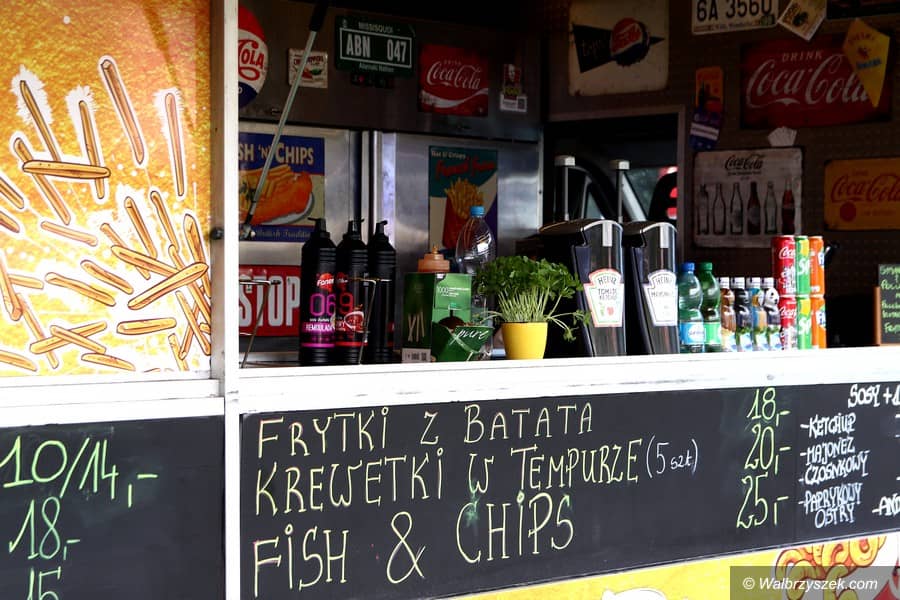 MISSISQUOI
ABN 047
6A 3560
COLA
Coca-Cola
DRINK
Coca-Cola
SH 'N' CHIPS
Coca-Cola
Coca-Cola
STOP
HEINZ
HEINZ
KETCHUP
06
REMOULADE
pure
10/14,-
18,-
15
FRYTKI Z BATATA 18,-
KREWETKI W TEMPURZE (5 szt) 20,-
FISH & CHIPS 25,-
SOSY +1
-KETCHUP
-MAJONEZ
-CZOSNKOWY
-PAPRYKOWY
OSTRY
-AND
© Walbrzyszek.com